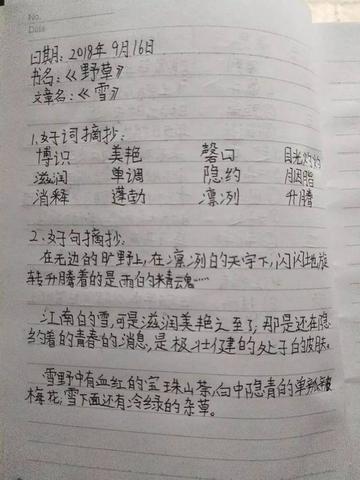 No.
Date
日期：2018年9月16日
书名：《野草》
文章名：《雪》
1.好词摘抄：
博识 美艳 磬口 目光灼灼
滋润 单调 隐约 胭脂
消释 蓬勃 凛冽 升腾
2.好句摘抄：
在无边的旷野上，在凛冽的天宇下，闪闪地旋
转升腾着的是雨的精魂……
江南的雪，可是滋润美艳之至了；那是还在隐
约着的青春的消息，是极壮健的处子的皮肤。
雪野中有血红的宝珠山茶，白中隐青的单瓣
梅花，雪下面还有冷绿的杂草。